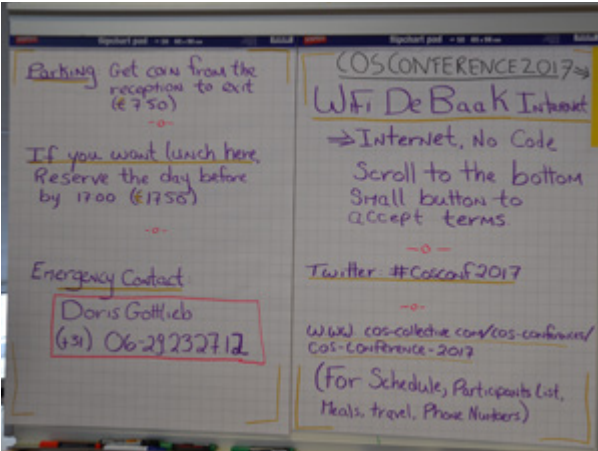 flipchart pad
Parking Get coin from the
reception to exit
(€ 7 50)
-o-
If you want lunch here,
Reserve the day before
by 1700 (€1750)
-o-
Emergency Contact
Doris Gottlieb
(+31) 06-29232712
flipchart pad
COSCONFERENCE2017 ⇒
WiFi De Baak Internet
⇒ Internet, No Code
Scroll to the bottom
Small button to
accept terms.
-o-
Twitter: #Cosconf2017
-o-
www cos-collective com/cos-conferences/
Cos-Conference-2017
(For Schedule, Participants List,
Meals, travel, Phone Numbers)